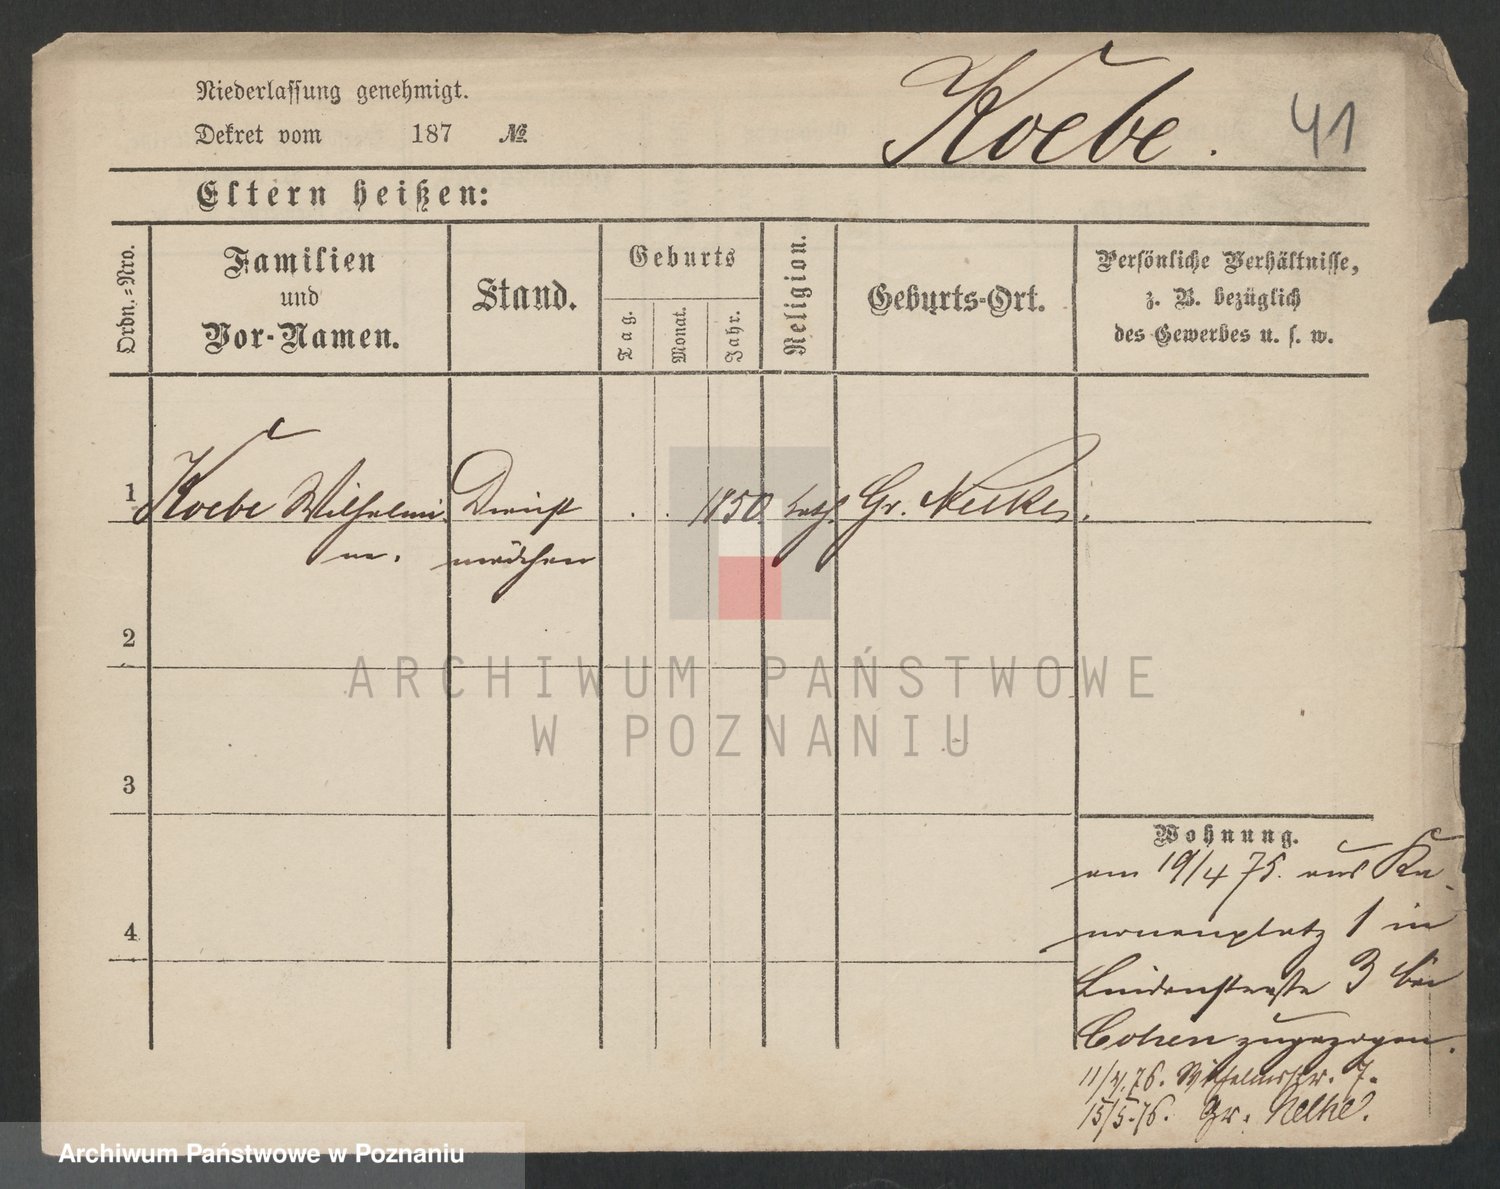 Niederlassung genehmigt.
Koebe. 41
Dekret vom 187 №
Eltern heißen:
Ordn.-Nro.
Familien
und
Vor-Namen.
Stand.
Geburts
Tag.
Monat.
Jahr.
Religion.
Geburts-Ort.
Persönliche Verhältnisse,
z. B. bezüglich
des Gewerbes u. s. w.
1 Koebe Wilhelmi- Dienst . . 1850 kath. Gr. Nelke.
ne. mädchen
2
3
4
ARCHIWUM PAŃSTWOWE
W POZNANIU
Wohnung.
am 19/4 75. aus Ka-
nonenplatz 1 in
Lindenstraße 3 bei
Cohen zugezogen.
11/4.76. Wilhelmstr. 7.
15/5.76. Gr. Nelke.
Archiwum Państwowe w Poznaniu